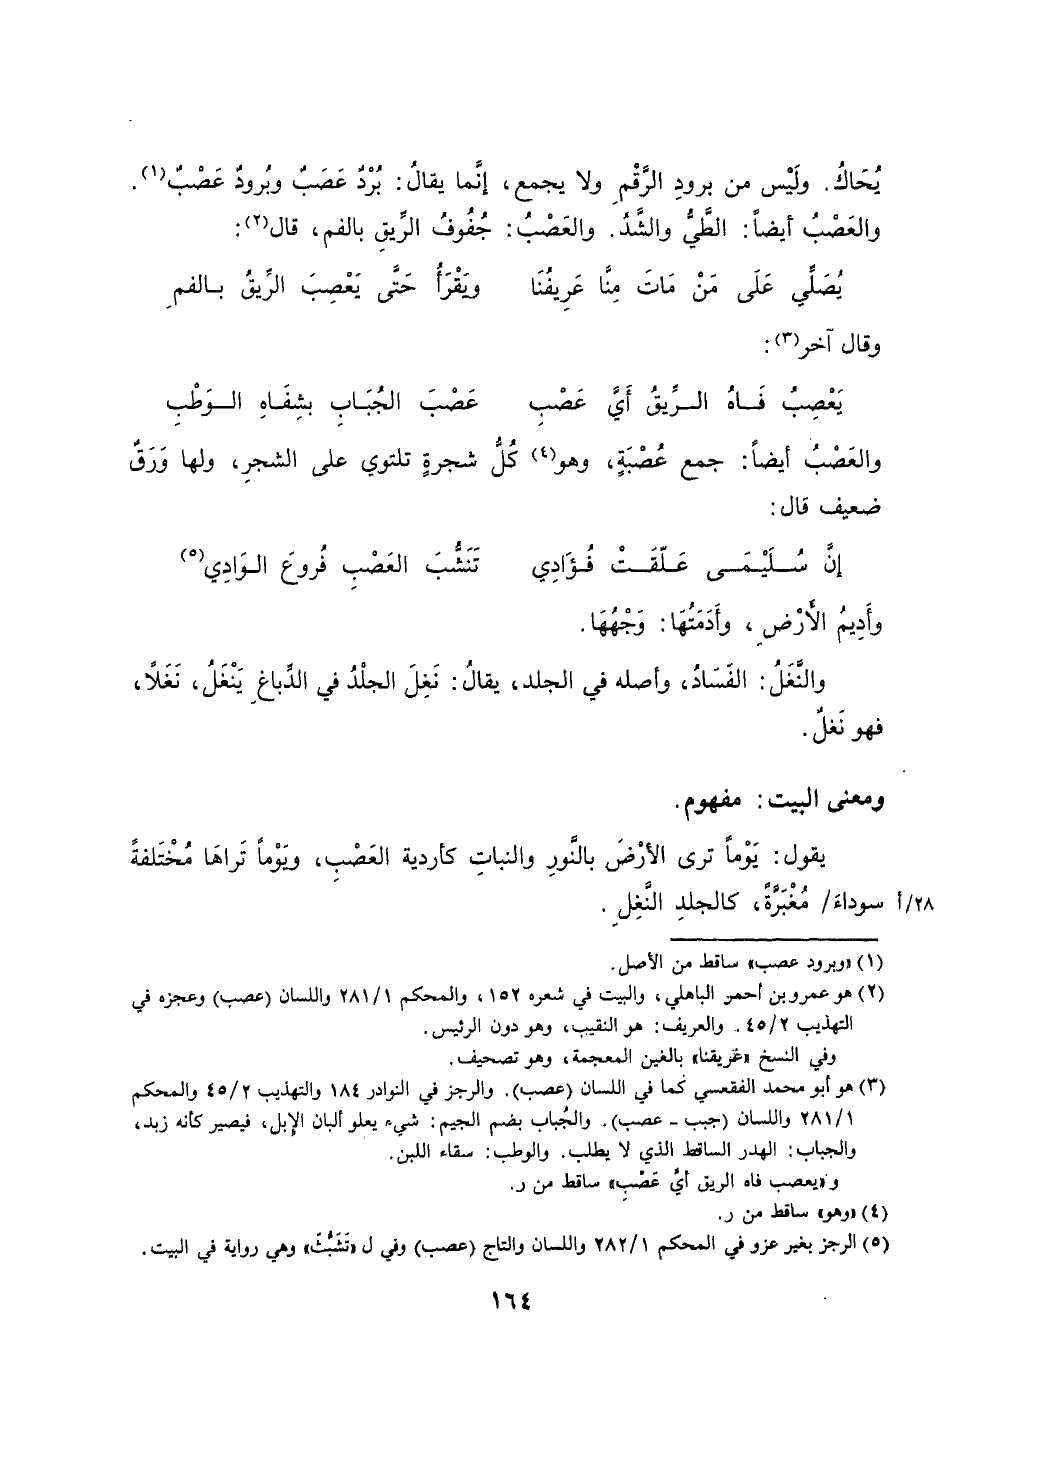 يُحَاكُ. ولَيْس من برودِ الرَّقْمِ ولا يجمع، إنَّما يقالُ: بُرْدُ عَصَبٌ وبُرودٌ عَصْبٌ(١).
والعَصْبُ أيضاً: الطَّيُّ والشَّدُ. والعَصْبُ: جُفُوفُ الرِّيقِ بالفم، قال(٢):
يُصَلِّي عَلَى مَنْ مَاتَ مِنَّا عَرِيفُنَا ويَقْرَأُ حَتَّى يَعْصِبَ الرِّيقُ بـالفمِ
وقال آخر(٣):
يَعْصِبُ فَـاهُ الـرِّيقُ أَيَّ عَصْبِ عَصْبَ الجُبَـابِ بشِفَـاهِ الـوَطْبِ
والعَصْبُ أيضاً: جمع عُصْبَةٍ، وهو(٤) كُلُّ شجرةٍ تلتوي على الشجرِ، ولها وَرَقٌ
ضعيف قال:
إنَّ سُـلَيْـمَـى عَـلّقَـتْ فُـؤَادِي تَنَشُّبَ العَصْبِ فُروعَ الـوَادِي(٥)
وأَدِيمُ الأَرْضِ، وأَدَمَتُهَا: وَجْهُهَا.
والنَّغَلُ: الفَسَادُ، وأصله في الجلد، يقالُ: نَغِلَ الجلْدُ في الدِّباغِ يَنْغَلُ، نَغَلًا،
فهو نَغلٌ.
ومعنى البيت: مفهوم.
يقول: يَوْماً ترى الأرْضَ بالنَّورِ والنباتِ كأردية العَصْبِ، ويَوْماً تَراهَا مُخْتَلفةً
٢٨/أ سوداءَ/ مُغْبَرَّةً، كالجلدِ النَّغِلِ.
(١) «وبرود عصب» ساقط من الأصل.
(٢) هو عمرو بن أحمر الباهلي، والبيت في شعره ١٥٢، والمحكم ٢٨١/١ واللسان (عصب) وعجزه في
التهذيب ٤٥/٢. والعريف: هو النقيب، وهو دون الرئيس.
وفي النسخ «غريقنا» بالغين المعجمة، وهو تصحيف.
(٣) هو أبو محمد الفقعسي كما في اللسان (عصب). والرجز في النوادر ١٨٤ والتهذيب ٤٥/٢ والمحكم
٢٨١/١ واللسان (جبب ـ عصب). والجُباب بضم الجيم: شيء يعلو ألبان الإبل، فيصير كأنه زبد،
والجباب: الهدر الساقط الذي لا يطلب. والوطب: سقاء اللبن.
و«يعصب فاه الريق أيَّ عَصْبِ» ساقط من ر.
(٤) «وهو» ساقط من ر.
(٥) الرجز بغير عزو في المحكم ٢٨٢/١ واللسان والتاج (عصب) وفي ل «تَشَبُّثَ» وهي رواية في البيت.
١٦٤